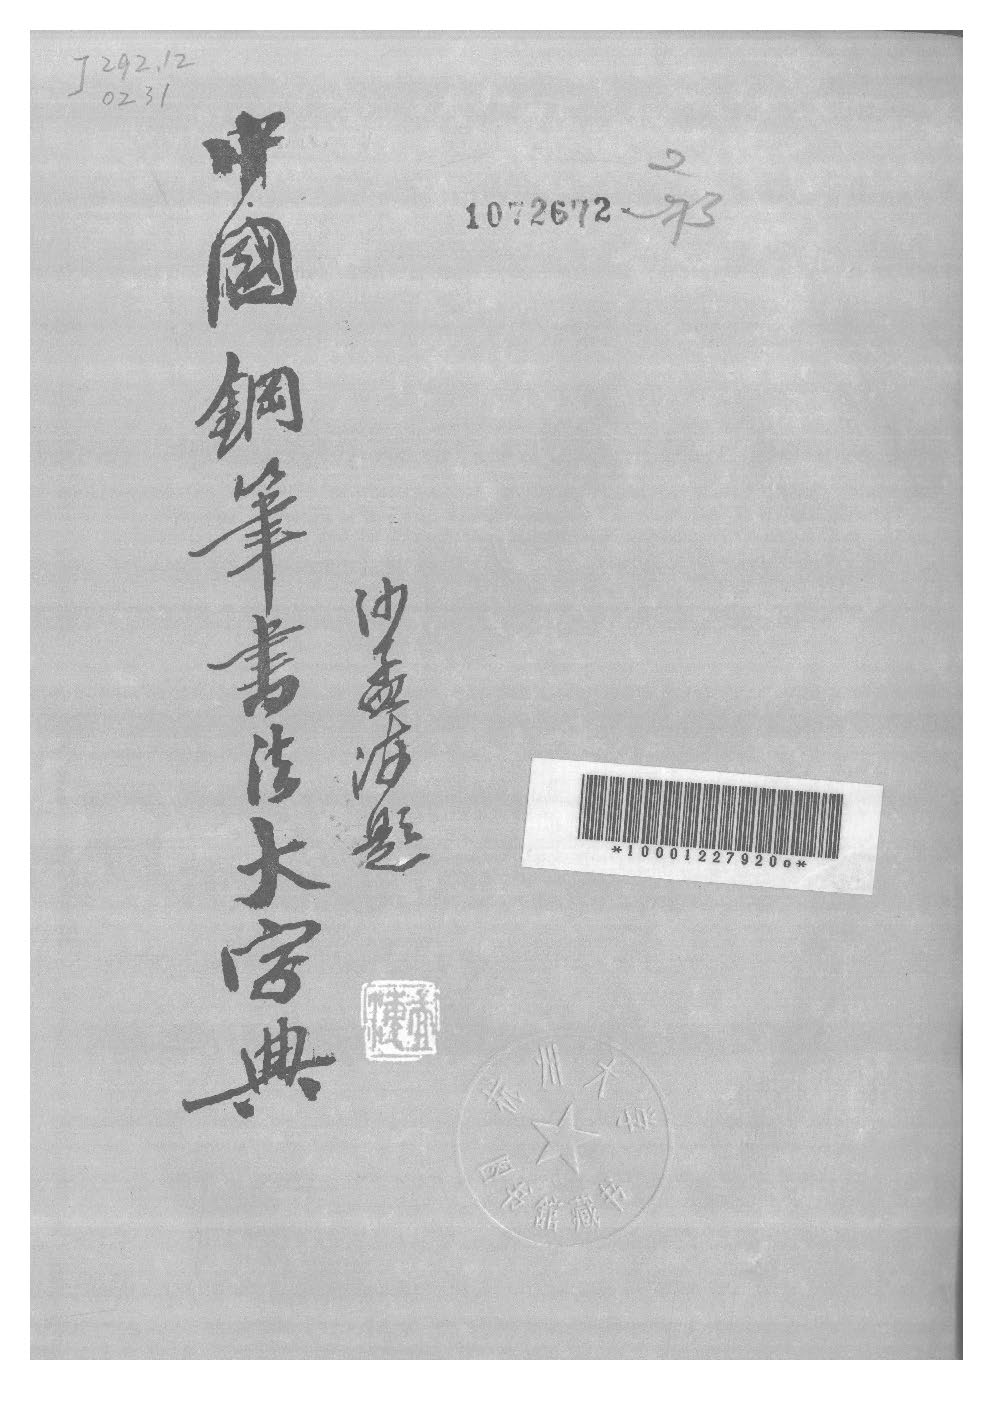 J292.12
0231
1072672
中國鋼筆書法大字典
沙孟海題
*10001227920o*
杭州大学
图书馆藏书